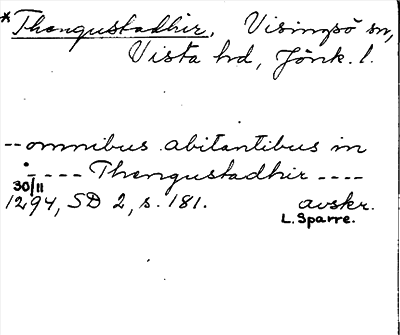 *Thengustadhir, Visingsö sn,
Vista hd, Jönk. l.
--omnibus abitantibus in
---- Thengustadhir ----
30/11
1294, SD 2, s. 181. avskr.
L. Sparre.